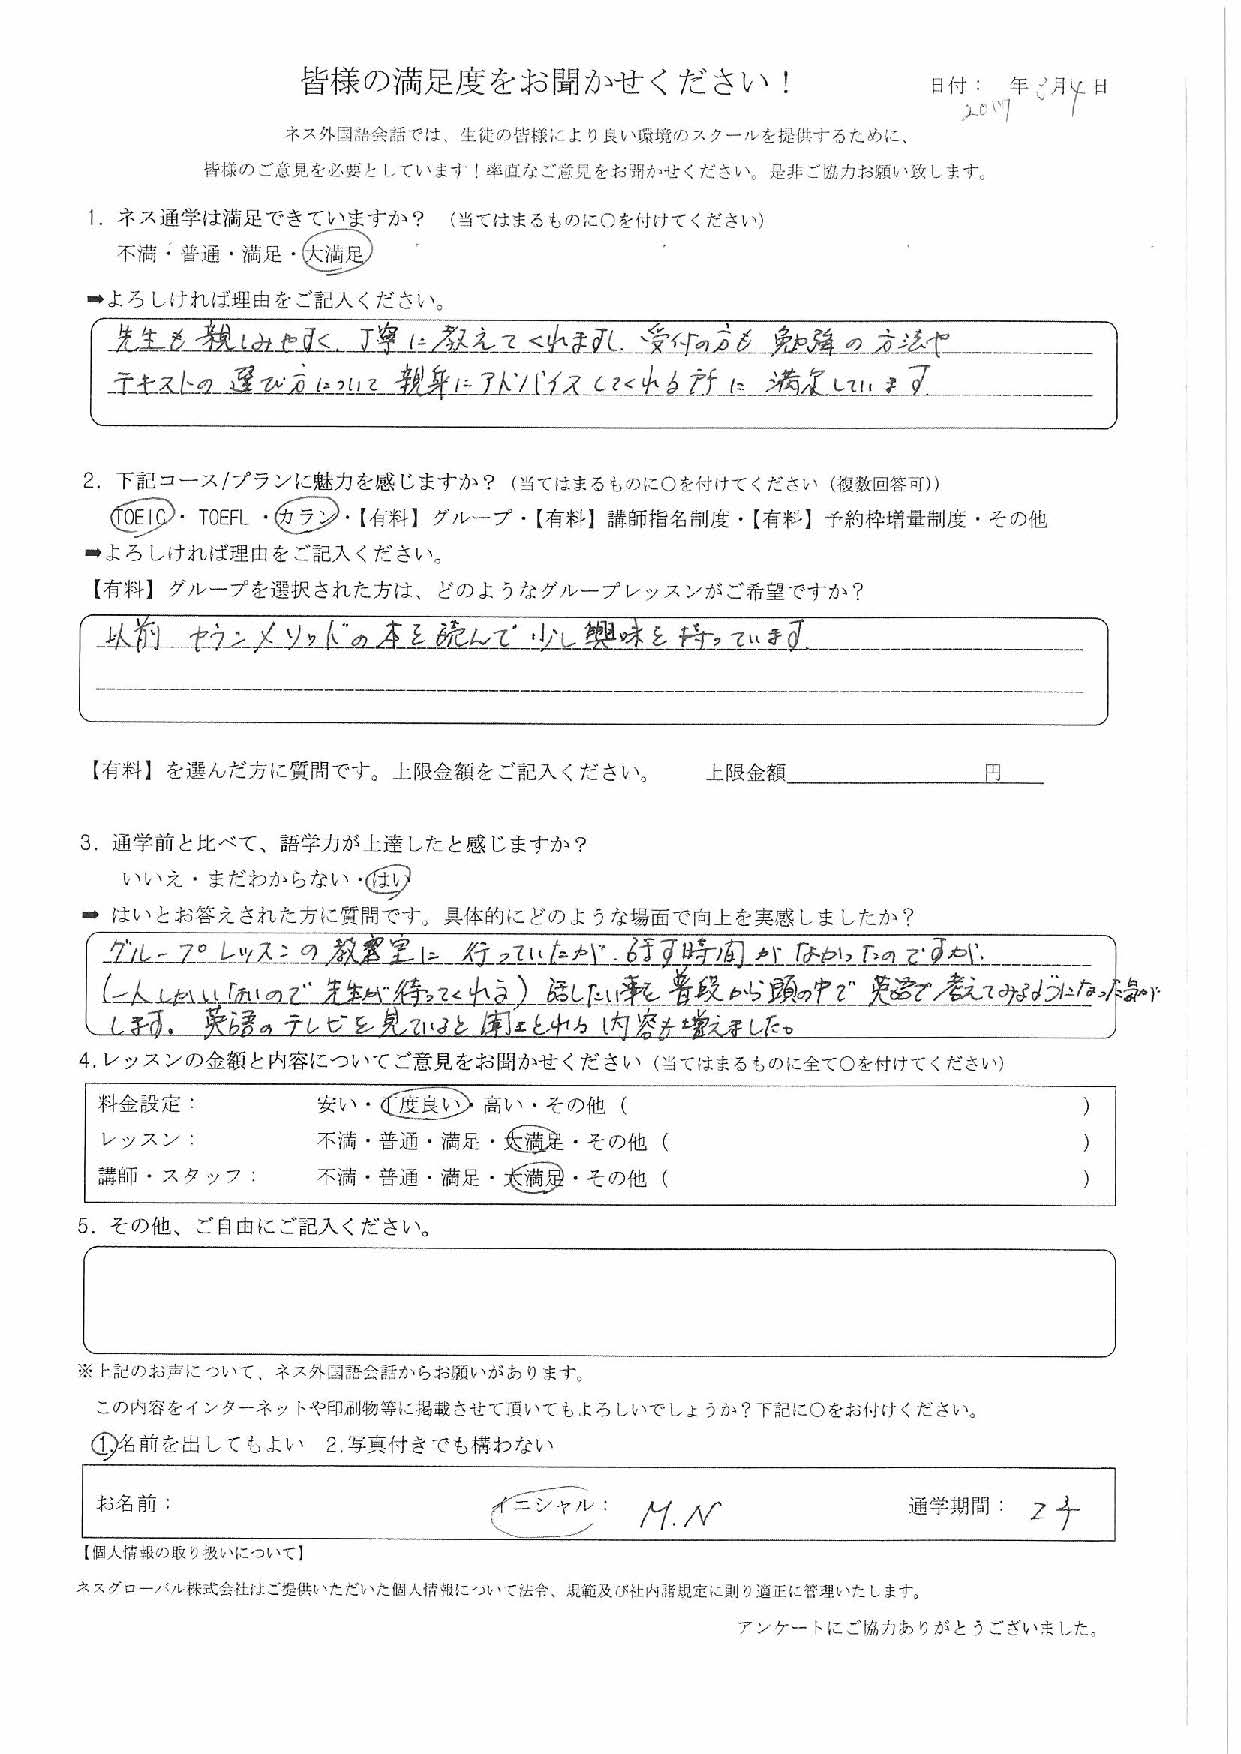 皆様の満足度をお聞かせください！
日付： 2017年3月4日
ネス外国語会話では、生徒の皆様により良い環境のスクールを提供するために、
皆様のご意見を必要としています！率直なご意見をお聞かせください。是非ご協力お願い致します。
1. ネス通学は満足できていますか？ （当てはまるものに○を付けてください）
不満・普通・満足・大満足
➡よろしければ理由をご記入ください。
先生も親しみやすく、丁寧に教えてくれますし、受付の方も勉強の方法や
テキストの選び方について親身にアドバイスしてくれる所に満足しています。
2. 下記コース/プランに魅力を感じますか？（当てはまるものに○を付けてください（複数回答可））
TOEIC・ TOEFL ・カラン・【有料】グループ・【有料】講師指名制度・【有料】予約枠増量制度・その他
➡よろしければ理由をご記入ください。
【有料】グループを選択された方は、どのようなグループレッスンがご希望ですか？
以前 カランメソッドの本を読んで少し興味を持っています。
【有料】を選んだ方に質問です。上限金額をご記入ください。 上限金額 円
3. 通学前と比べて、語学力が上達したと感じますか？
いいえ・まだわからない・はい
➡ はいとお答えされた方に質問です。具体的にどのような場面で向上を実感しましたか？
グループレッスンの教室に行っていたが、話す時間がなかったのですが、
(一人しかいないので先生が待ってくれる)話したい事を普段から頭の中で英語で考えてみるようになった気が
します。英語のテレビを見ていると聞きとれる内容も増えました。
4.レッスンの金額と内容についてご意見をお聞かせください（当てはまるものに全て○を付けてください）
料金設定： 安い・丁度良い・高い・その他（ ）
レッスン： 不満・普通・満足・大満足・その他（ ）
講師・スタッフ： 不満・普通・満足・大満足・その他（ ）
5. その他、ご自由にご記入ください。
※上記のお声について、ネス外国語会話からお願いがあります。
この内容をインターネットや印刷物等に掲載させて頂いてもよろしいでしょうか？下記に○をお付けください。
1.名前を出してもよい 2.写真付きでも構わない
お名前： イニシャル： M.N 通学期間： 2年
【個人情報の取り扱いについて】
ネスグローバル株式会社はご提供いただいた個人情報について法令、規範及び社内諸規定に則り適正に管理いたします。
アンケートにご協力ありがとうございました。